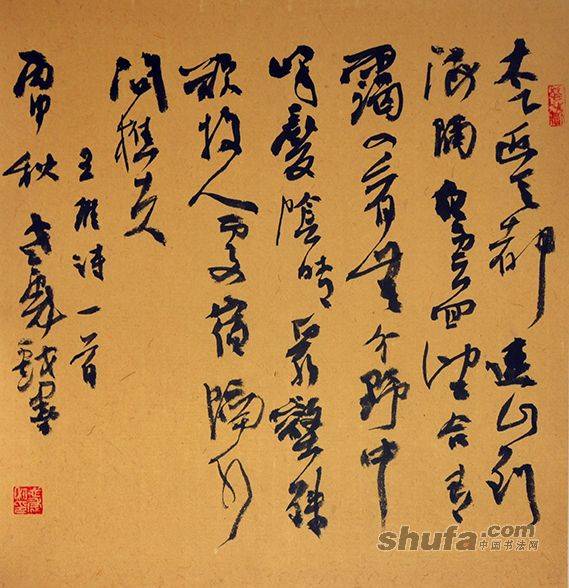 太乙近天都連山到
海隅白雲回望合青
靄入看無分野中
峰變陰晴眾壑殊
欲投人處宿隔水
問樵夫
王維詩一首
丙申秋
shufa.com
中国书法网